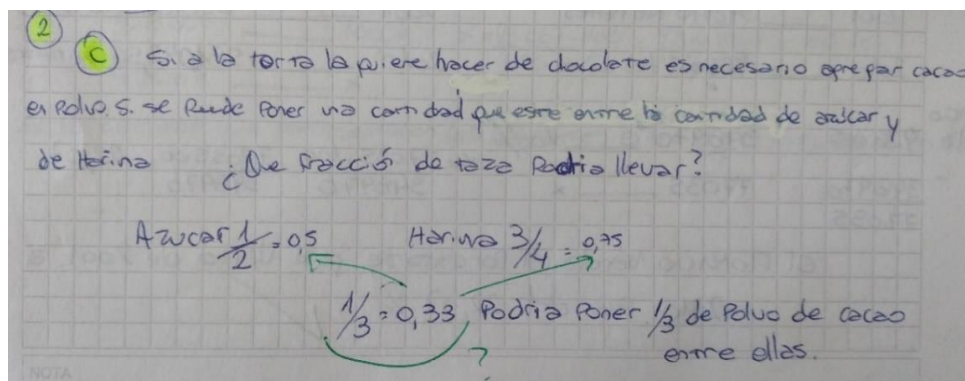 2
C Si a la torta la quiere hacer de chocolate es necesario agregar cacao
en polvo. Si se puede poner una cantidad que este entre la cantidad de azúcar y
de Harina ¿Que fracción de taza Podria llevar?
Azucar 1/2 = 0,5 Harina 3/4 = 0,75
1/3 = 0,33 Podria Poner 1/3 de Polvo de cacao
entre ellas.
?
NOTA